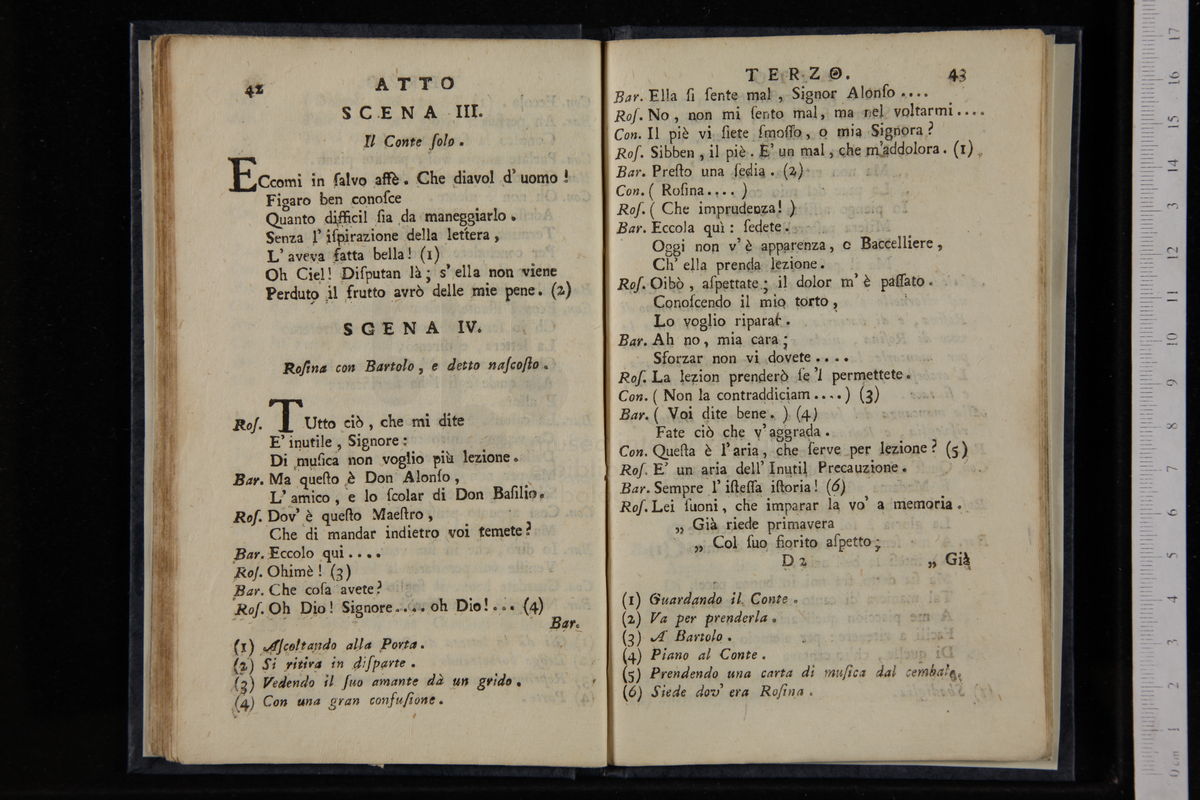 42
ATTO
SCENA III.
Il Conte ſolo.
ECcomi in ſalvo affè. Che diavol d' uomo!
Figaro ben conoſce
Quanto difficil ſia da maneggiarlo.
Senza l' iſpirazione della lettera,
L' aveva fatta bella! (1)
Oh Ciel! Diſputan là; s' ella non viene
Perduto il frutto avrò delle mie pene. (2)
SCENA IV.
Roſina con Bartolo, e detto naſcoſto.
Roſ. TUtto ciò, che mi dite
E' inutile, Signore:
Di muſica non voglio più lezione.
Bar. Ma queſto è Don Alonſo,
L' amico, e lo ſcolar di Don Baſilio.
Roſ. Dov' è queſto Maeſtro,
Che di mandar indietro voi temete?
Bar. Eccolo qui....
Roſ. Ohimè! (3)
Bar. Che coſa avete?
Roſ. Oh Dio! Signore.... oh Dio!... (4)
Bar.
(1) Aſcoltando alla Porta.
(2) Si ritira in diſparte.
(3) Vedendo il ſuo amante dà un grido.
(4) Con una gran confuſione.
TERZO.
43
Bar. Ella ſi ſente mal, Signor Alonſo....
Roſ. No, non mi ſento mal, ma nel voltarmi....
Con. Il piè vi ſiete ſmoſſo, o mia Signora?
Roſ. Sibben, il piè. E' un mal, che m'addolora. (1)
Bar. Preſto una ſedia. (2)
Con. ( Roſina.... )
Roſ. ( Che imprudenza! )
Bar. Eccola quì: ſedete.
Oggi non v' è apparenza, o Baccelliere,
Ch' ella prenda lezione.
Roſ. Oibò, aſpettate; il dolor m' è paſſato.
Conoſcendo il mio torto,
Lo voglio riparar.
Bar. Ah no, mia cara;
Sforzar non vi dovete....
Roſ. La lezion prenderò ſe 'l permettete.
Con. ( Non la contraddiciam....) (3)
Bar. ( Voi dite bene. ) (4)
Fate ciò che v' aggrada.
Con. Queſta è l' aria, che ſerve per lezione? (5)
Roſ. E' un aria dell' Inutil Precauzione.
Bar. Sempre l' iſteſſa iſtoria! (6)
Roſ. Lei ſuoni, che imparar la vo' a memoria.
„ Già riede primavera
„ Col ſuo fiorito aſpetto;
D 2
„ Già
(1) Guardando il Conte.
(2) Va per prenderla.
(3) A Bartolo.
(4) Piano al Conte.
(5) Prendendo una carta di muſica dal cembalo.
(6) Siede dov' era Roſina.
0 cm 1 2 3 4 5 6 7 8 9 10 11 12 13 14 15 16 17